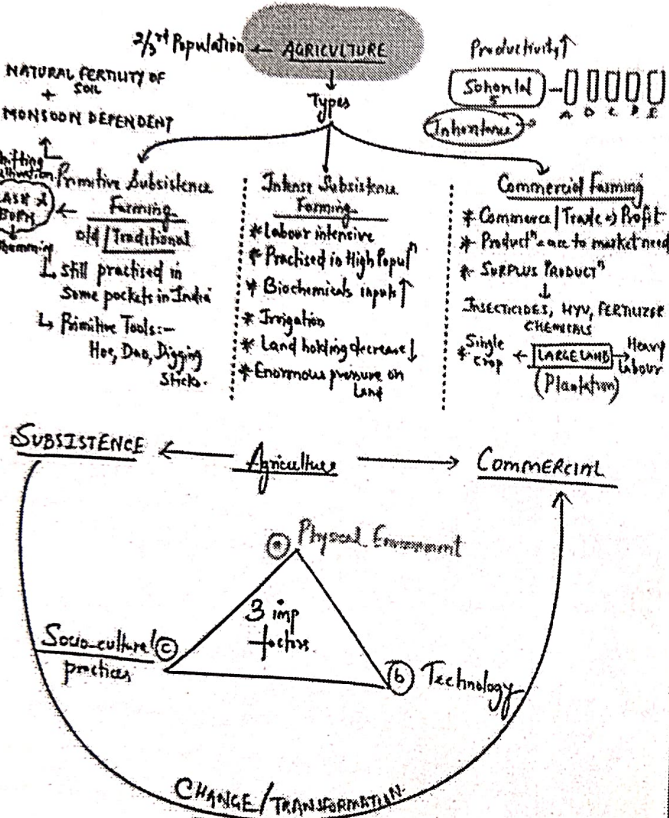 2/3rd Population ← AGRICULTURE
Productivity↑
NATURAL FERTILITY OF
SOIL
+
MONSOON DEPENDENT
Types
Sohonlal
5
A
Inheritance
Primitive Subsistence
Farming
old / Traditional
BURN
↳ still practised in
some pockets in India
↳ Primitive Tools:-
Hoe, Dao, Digging
Sticks.
Intense Subsistence
Farming
* Labour intensive
* Practised in High Populn
* Biochemicals inputs ↑
* Irrigation
* Land holding decrease ↓
* Enormous pressure on
Land
Commercial Farming
* Commerce / Trade → Profit
* Productn acc to market need
* SURPLUS PRODUCTn
INSECTICIDES, HYV, FERTILIZER
CHEMICALS
* Single Crop ← LARGE LAND → Heavy Labour
(Plantation)
SUBSISTENCE ← Agriculture → COMMERCIAL
(a) Physical Environment
3 imp
factors
Socio-cultural (c)
practices
(b) Technology
CHANGE/TRANSFORMATION